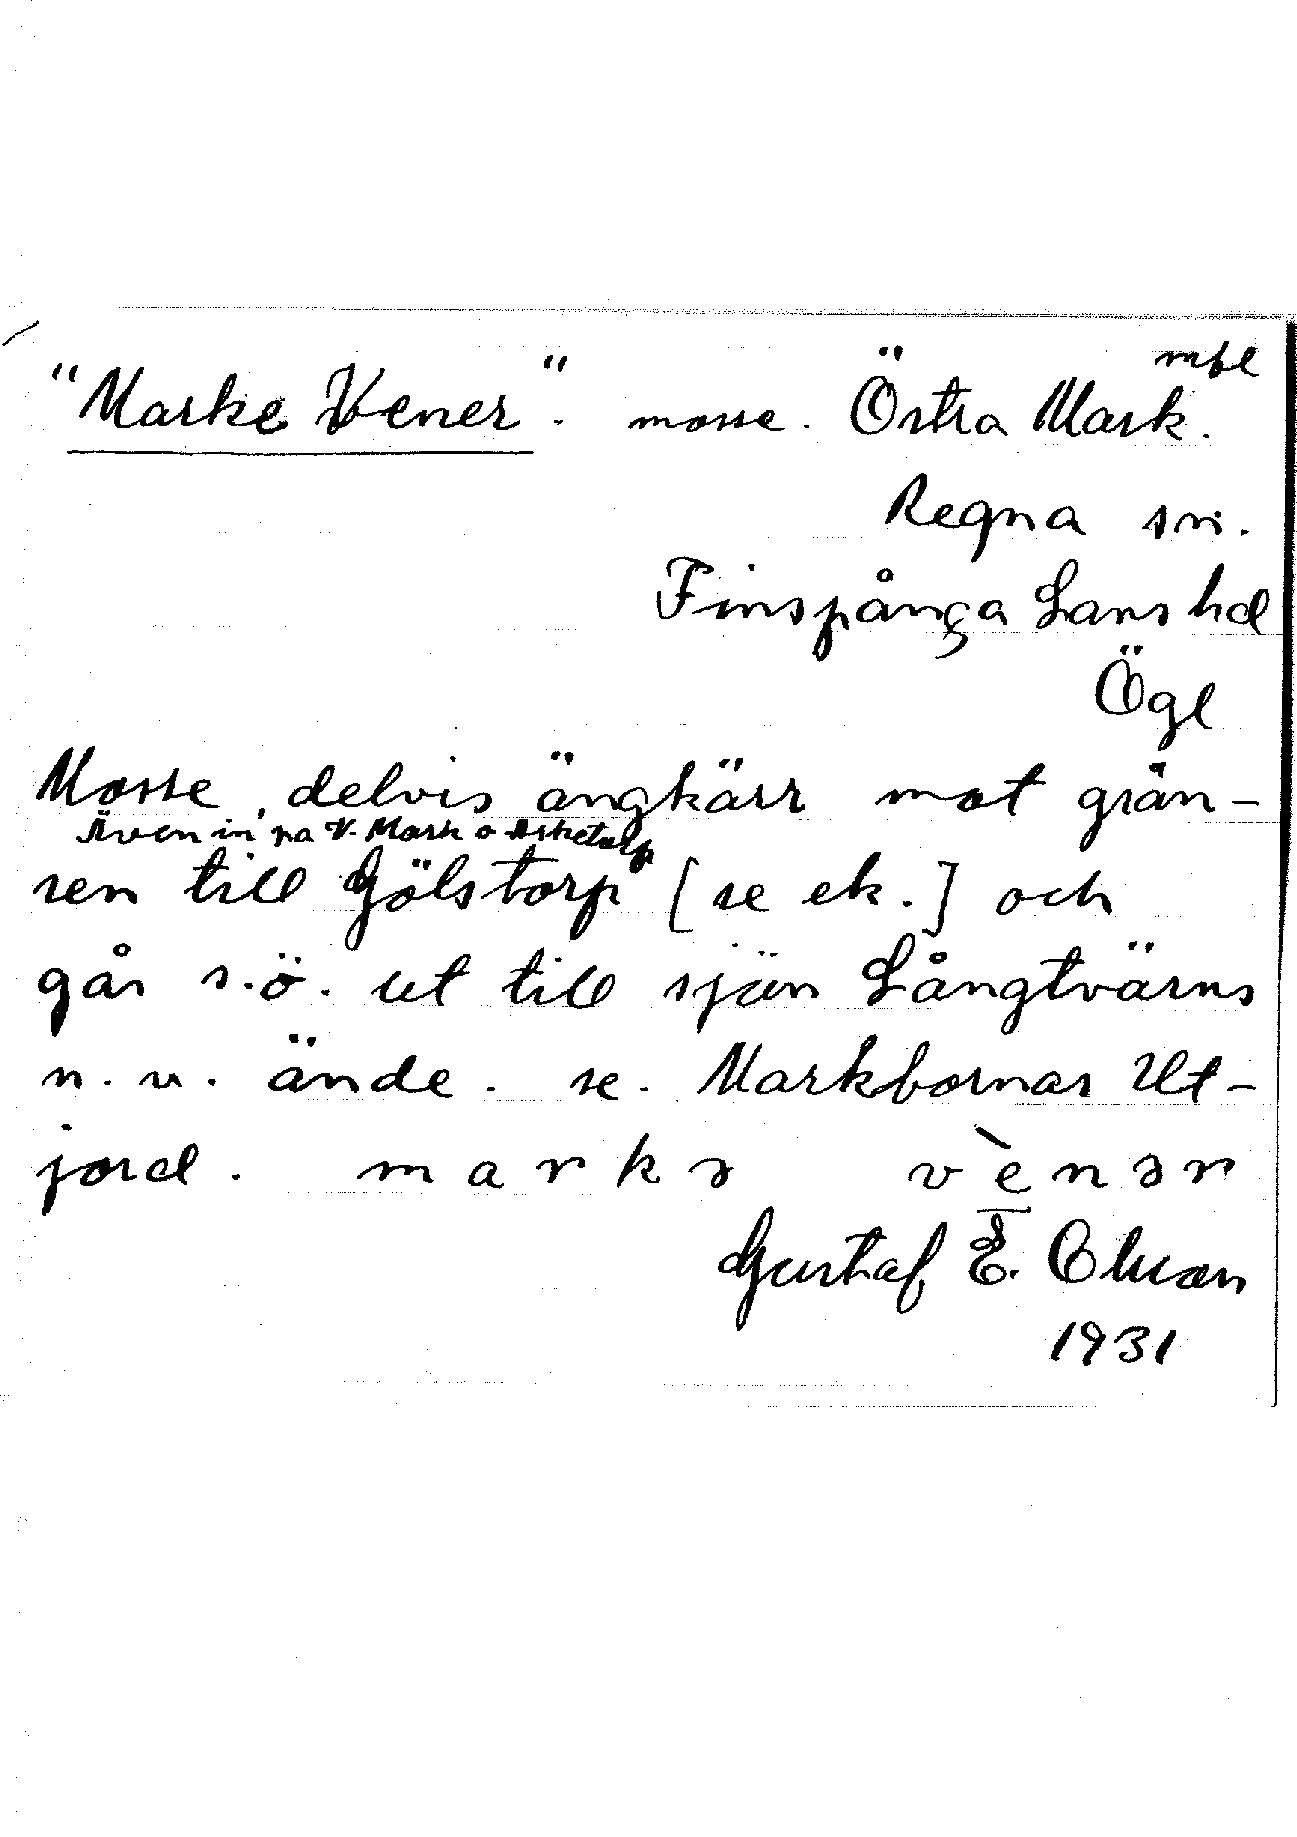 mfl
"Marke Vener". mosse. Östra Mark.
Regna sn.
Finspånga Läns hd
Ögl
Mosse, delvis ängkärr mot grän-
Även in på V. Mark o Asketorp
sen till Gölstorp [se ek.] och
går s.ö. ut till sjön Långtvärns
n.v. ände. se. Markbornas Ut-
jord. markə vènər
Gustaf E. Olsson
1931